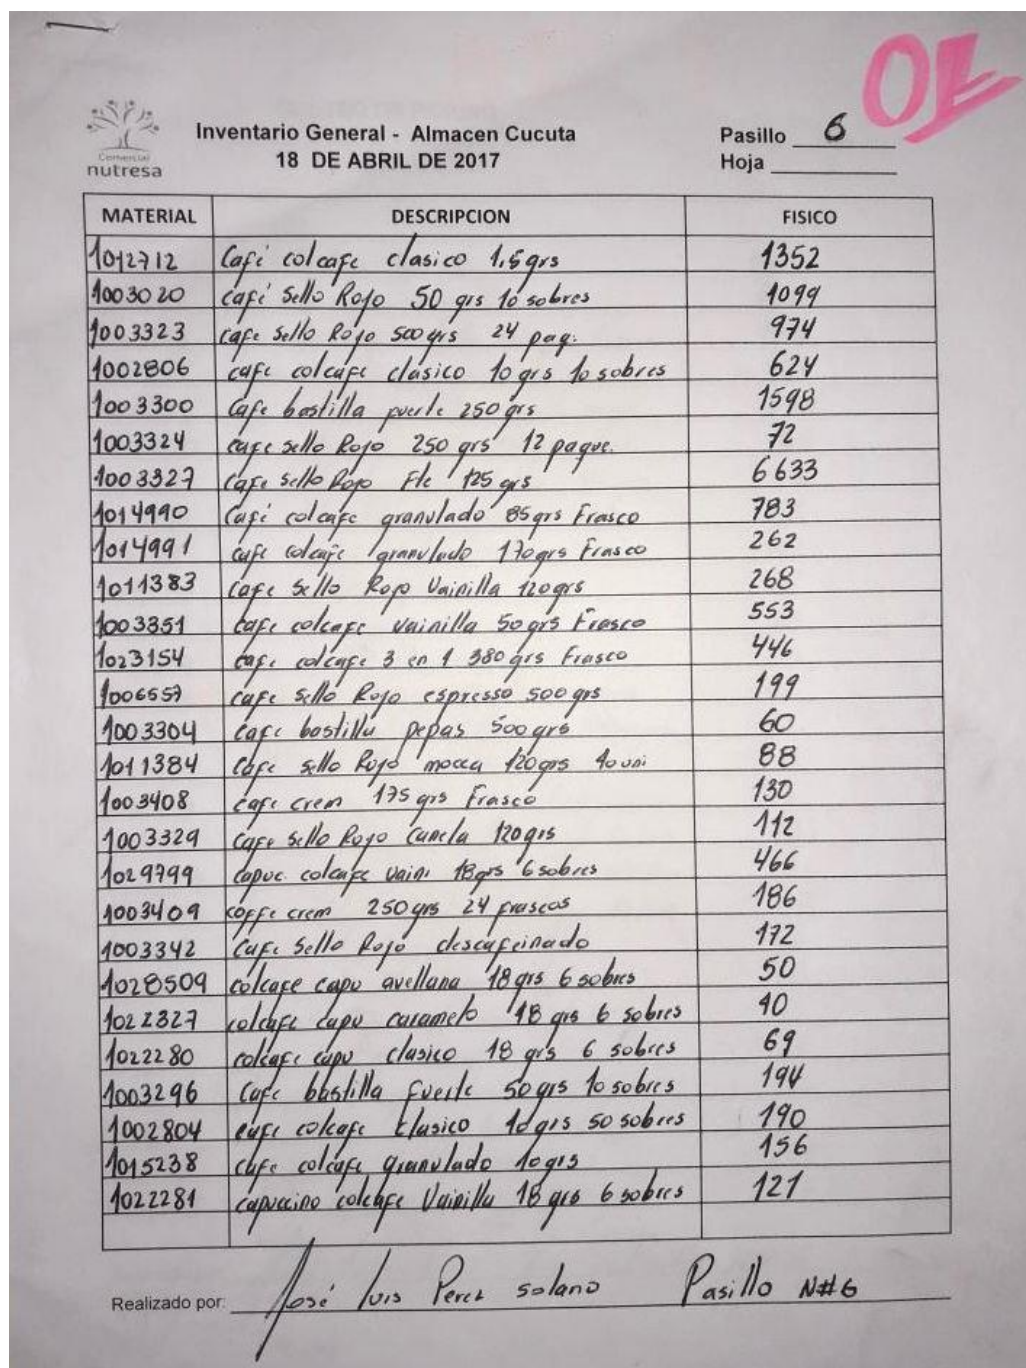 OK
Comercial
nutresa
Inventario General - Almacen Cucuta
18 DE ABRIL DE 2017
Pasillo 6
Hoja
MATERIAL DESCRIPCION FISICO
1012712 Café colcafe clasico 1,5grs 1352
1003020 café Sello Rojo 50 grs 10 sobres 1099
1003323 cafe sello Rojo 500grs 24 paq. 974
1002806 cafe colcafe clásico 10 grs 10 sobres 624
1003300 cafe bastilla fuerte 250 grs 1598
1003324 cafe sello Rojo 250 grs 12 paque. 72
1003327 cafe sello Rojo Fte 125 grs 6633
1014990 Café colcafe granulado 85grs Frasco 783
1014991 cafe colcafe granulado 170grs Frasco 262
1011383 cafe sello Rojo Vainilla 120grs 268
1003351 cafe colcafe vainilla 50grs Frasco 553
1023154 cafe colcafe 3 en 1 380 grs Frasco 446
1006557 cafe sello Rojo espresso 500 grs 199
1003304 cafe bastilla pepas 500grs 60
1011384 cafe sello Rojo mocca 120grs 40 uni 88
1003408 cafe crem 175 grs Frasco 130
1003329 cafe sello Rojo canela 120grs 112
1029799 capuc. colcafe vaini 18grs 6 sobres 466
1003409 coffe crem 250grs 24 frascos 186
1003342 Cafe Sello Rojo descafeinado 172
1028509 colcafe capu avellana 18 grs 6 sobres 50
1022327 colcafe capu caramelo 18 grs 6 sobres 40
1022280 colcafe capu clasico 18 grs 6 sobres 69
1003296 Cafe bastilla fuerte 50grs 10 sobres 194
1002804 cafe colcafe clasico 10 grs 50 sobres 190
1015238 cafe colcafe granulado 10grs 156
1022281 capuccino colcafe Vainilla 18 grs 6 sobres 121
Realizado por: José Luis Perez solano Pasillo N#6